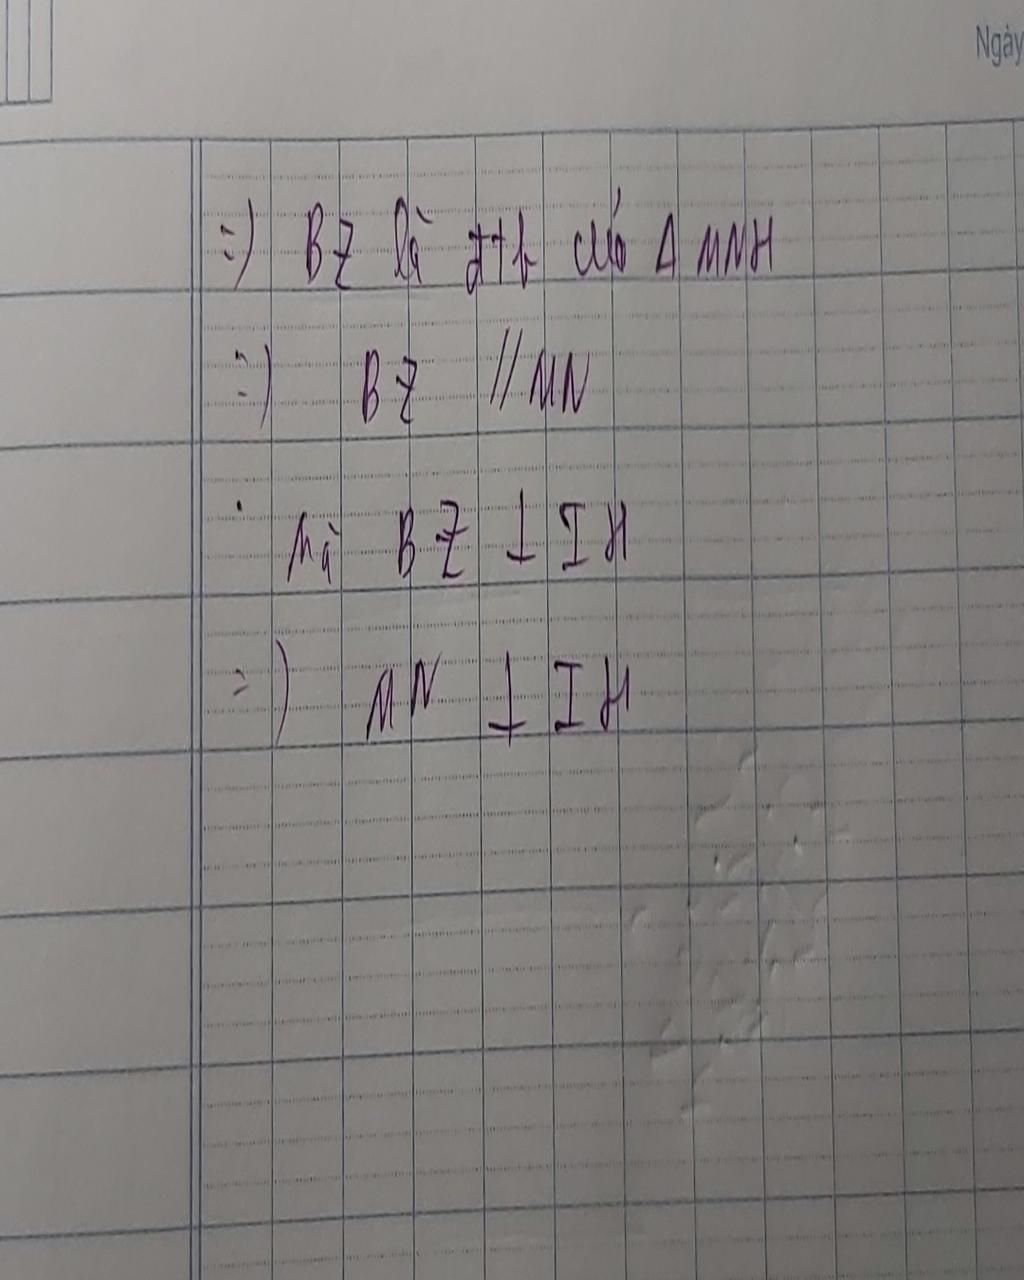 Ngày
=) BZ là đtb của Δ MNH
=) BZ // MN
Mà BZ ⊥ IH
=) MN ⊥ IH